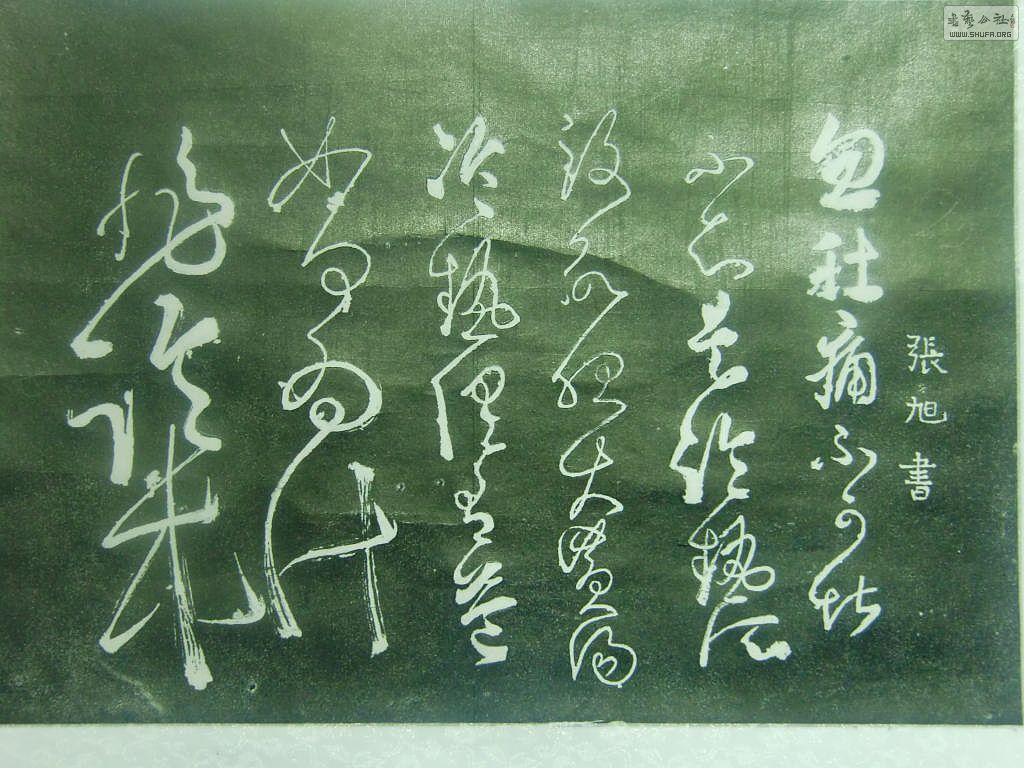 張旭書
忽肚痛不可堪
不知是冷熱所
致欲服大黃湯
冷熱俱有益
如何為計
非臨床
書藝公社
WWW.SHUFA.ORG